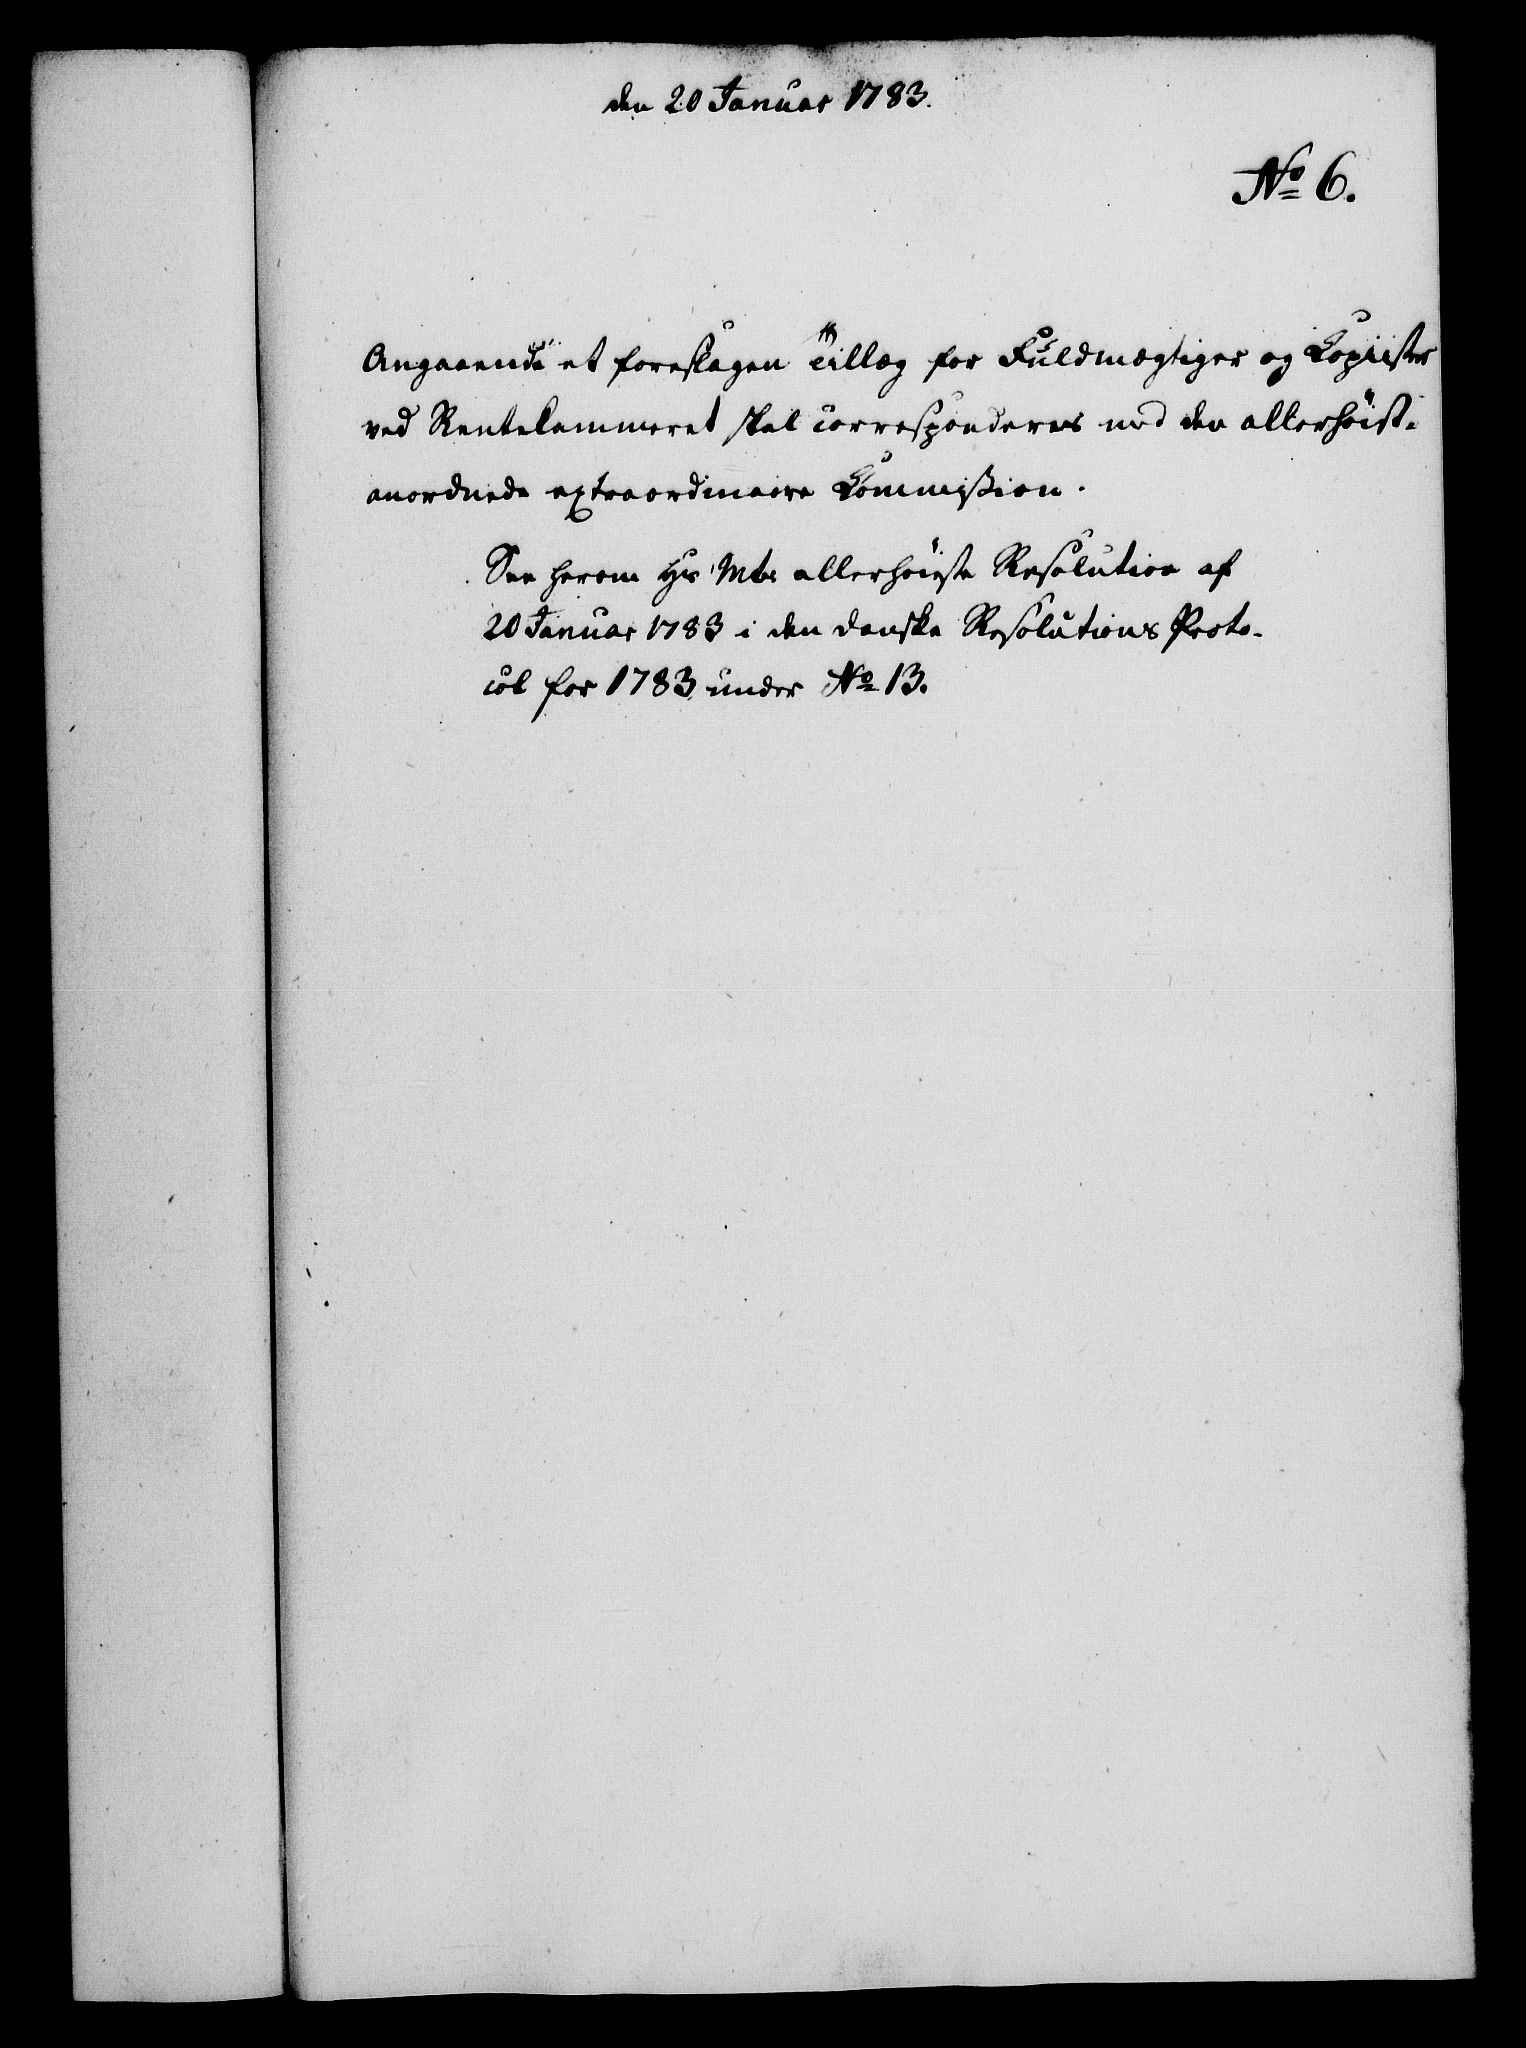 den 20 Januar 1783.
No 6.
Angaaende et foreslagen Tillæg for Fuldmægtiger og Copiister
ved Rentekammeret skal corresponderes med den allerhöist-
anordnede extraordinaire Commißion.
See herom Hs Mts allerhöieste Resolution af
20 Januar 1783 i den danske Resolutions Proto-
col for 1783 under No 13.